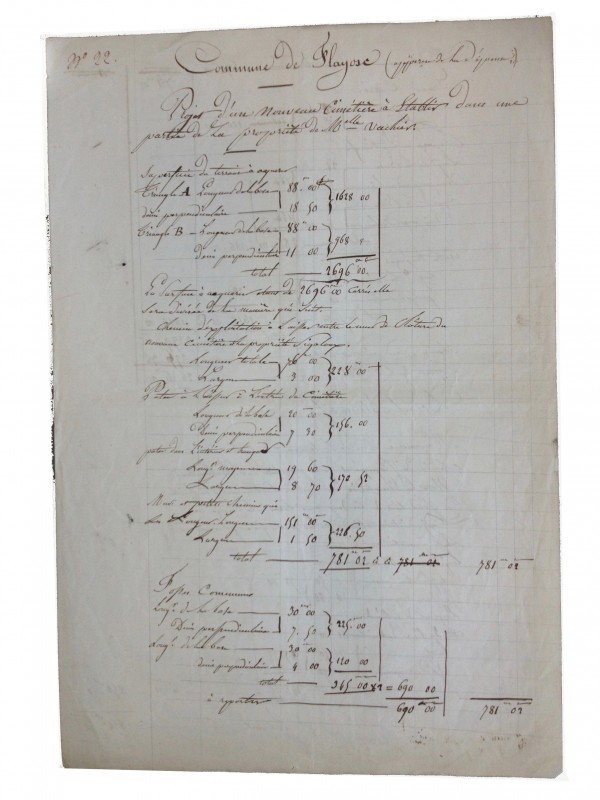 N° 22.
Commune de Flayosc
Projet d'un Nouveau Cimetière à Etablir dans une
partie de la propriété de Melle Vachier.
Superficie du terrain à acquérir
Triangle A Longueur de la base 88 00 } 1628 00
demi perpendiculaire 18 50
Triangle B - Longueur de la base 88 00 } 968
Demi perpendiculaire 11 00
total 2696 00
La surface à acquérir de 2696 00 carrés elle
sera divisée de la manière qui suit.
Chemin d'exploitation à laisser contre le mur de Clôture du
cimetière et la propriété
Longueur totale 76 00 } 228 00
Largeur 3 00
à laisser à l'entrée du Cimetière
Longueur de la base 20 00 } 156.00
Demi perpendiculaire 7 80
Longr moyenne 19 60 } 170 52
Largeur 8 70
Mur et petits chemins qui
Longueur 151 00 } 226 50
Largeur 1 50
total 781 02 781 02 781 02
Fosses Communes
Longr de la base 30 00 } 225 00
Demi perpendiculaire 7 50
Longr de la base 30 00 } 120 00
demi perpendiculaire 4 00
total 345 00 x 2 = 690 00
à reporter 690 00 781 02